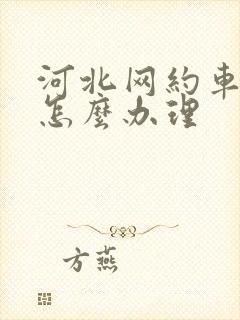 河北网約車
怎麼办理
方燕